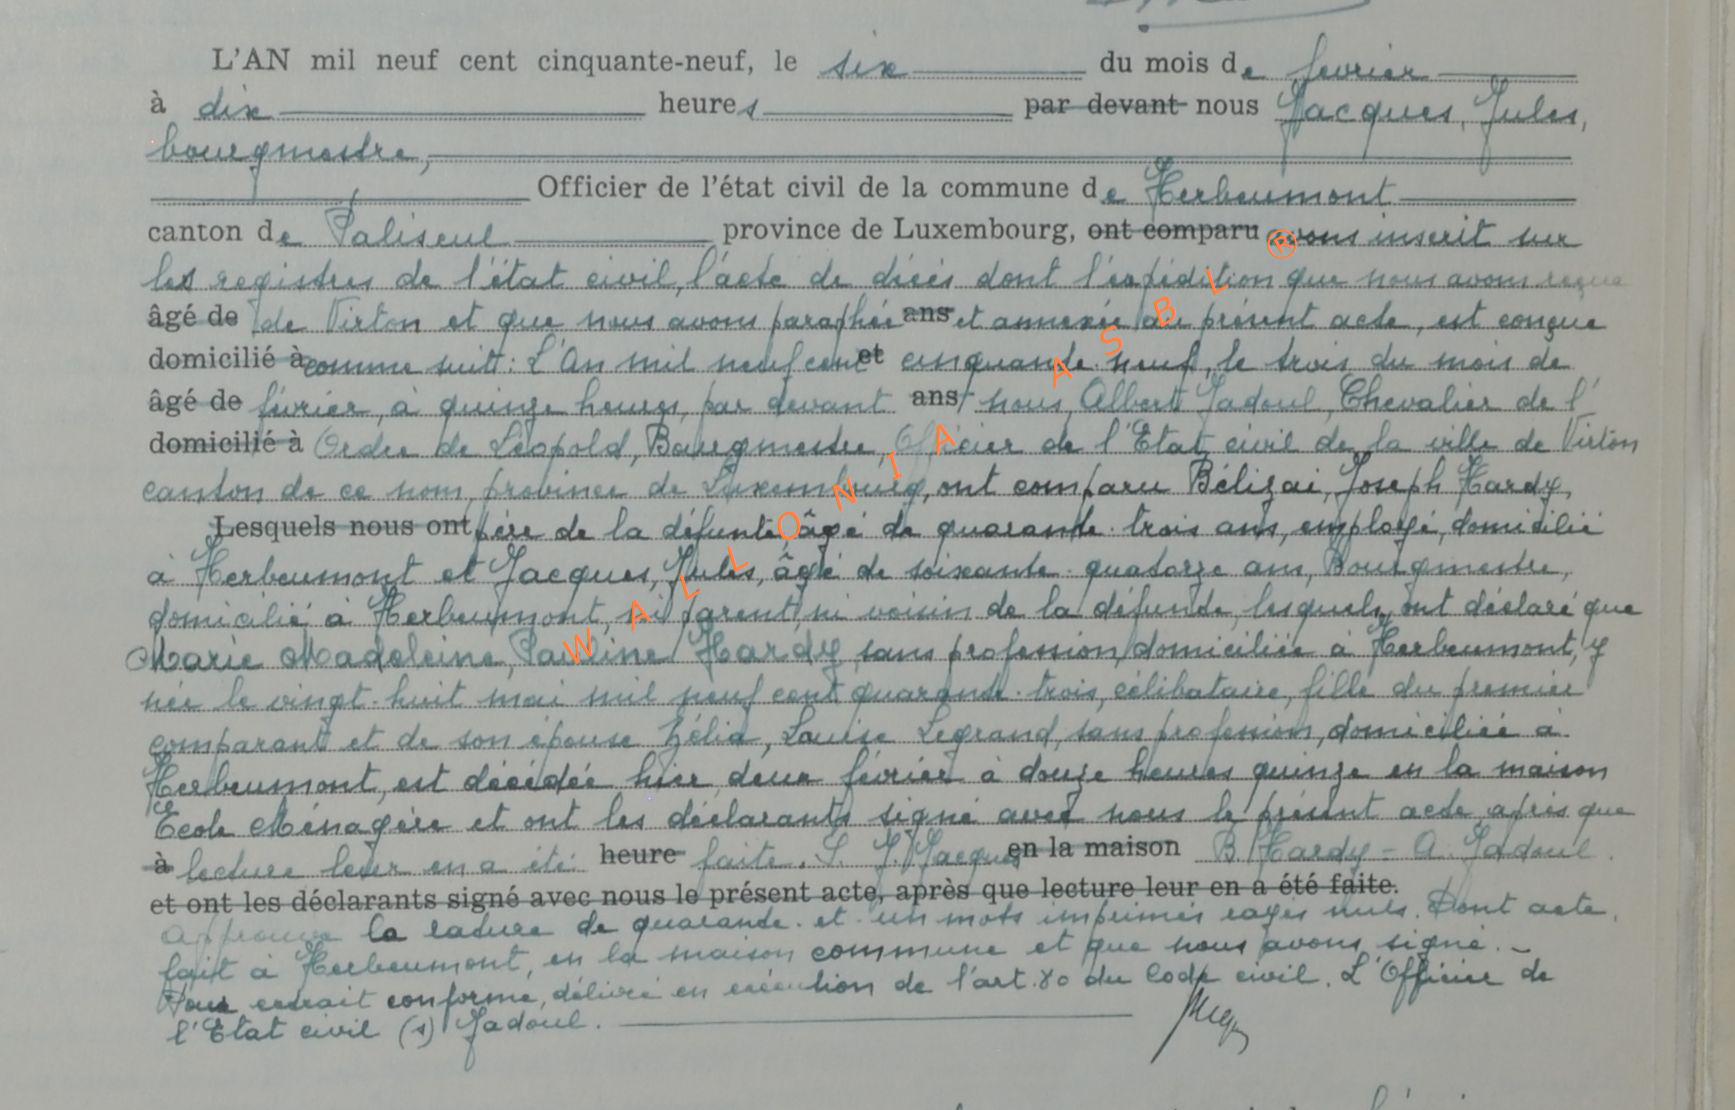 L'AN mil neuf cent cinquante-neuf, le six du mois de février
à dix heures par devant nous Jacques, Jules,
bourgmestre,
Officier de l'état civil de la commune de Herbeumont
canton de Paliseul province de Luxembourg, ont comparu avons inscrit sur
les registres de l'état civil, l'acte de décès dont l'expédition que nous avons reçue
âgé de de Virton et que nous avons paraphée ans et annexée au présent acte, est conçue
domicilié à comme suit : L'An mil neuf cent et cinquante-neuf, le trois du mois de
âgé de février, à quinze heures, par devant ans nous, Albert Jadoul, Chevalier de l'
domicilié à Ordre de Léopold, Bourgmestre, Officier de l'Etat civil de la ville de Virton
canton de ce nom, province de Luxembourg, ont comparu Bélizai, Joseph Hardy,
Lesquels nous ont père de la défunte, âgé de quarante-trois ans, employé, domicilié
à Herbeumont et Jacques, Jules, âgé de soixante-quatorze ans, Bourgmestre,
domicilié à Herbeumont, ni parent, ni voisin de la défunte, lesquels, ont déclaré que
Marie Madeleine, Pauline Hardy, sans profession, domiciliée à Herbeumont, y
née le vingt-huit mai mil neuf cent quarante-trois, célibataire, fille du premier
comparant et de son épouse Zélia, Louise Legrand, sans profession, domiciliée à
Herbeumont, est décédée hier deux février à douze heures quinze en la maison
Ecole Ménagère et ont les déclarants signé avec nous le présent acte après que
à lecture leur en a été heure faite. S. J. Jacques en la maison B. Hardy - A. Jadoul.
et ont les déclarants signé avec nous le présent acte, après que lecture leur en a été faite.
Approuvé la rature de quarante-et-un mots imprimés rayés nuls. Dont acte,
fait à Herbeumont, en la maison commune et que nous avons signé.-
Pour extrait conforme, délivré en exécution de l'art. 80 du Code civil. L'Officier de
l'Etat civil (s) Jadoul.
WALLONIA ASBL ®